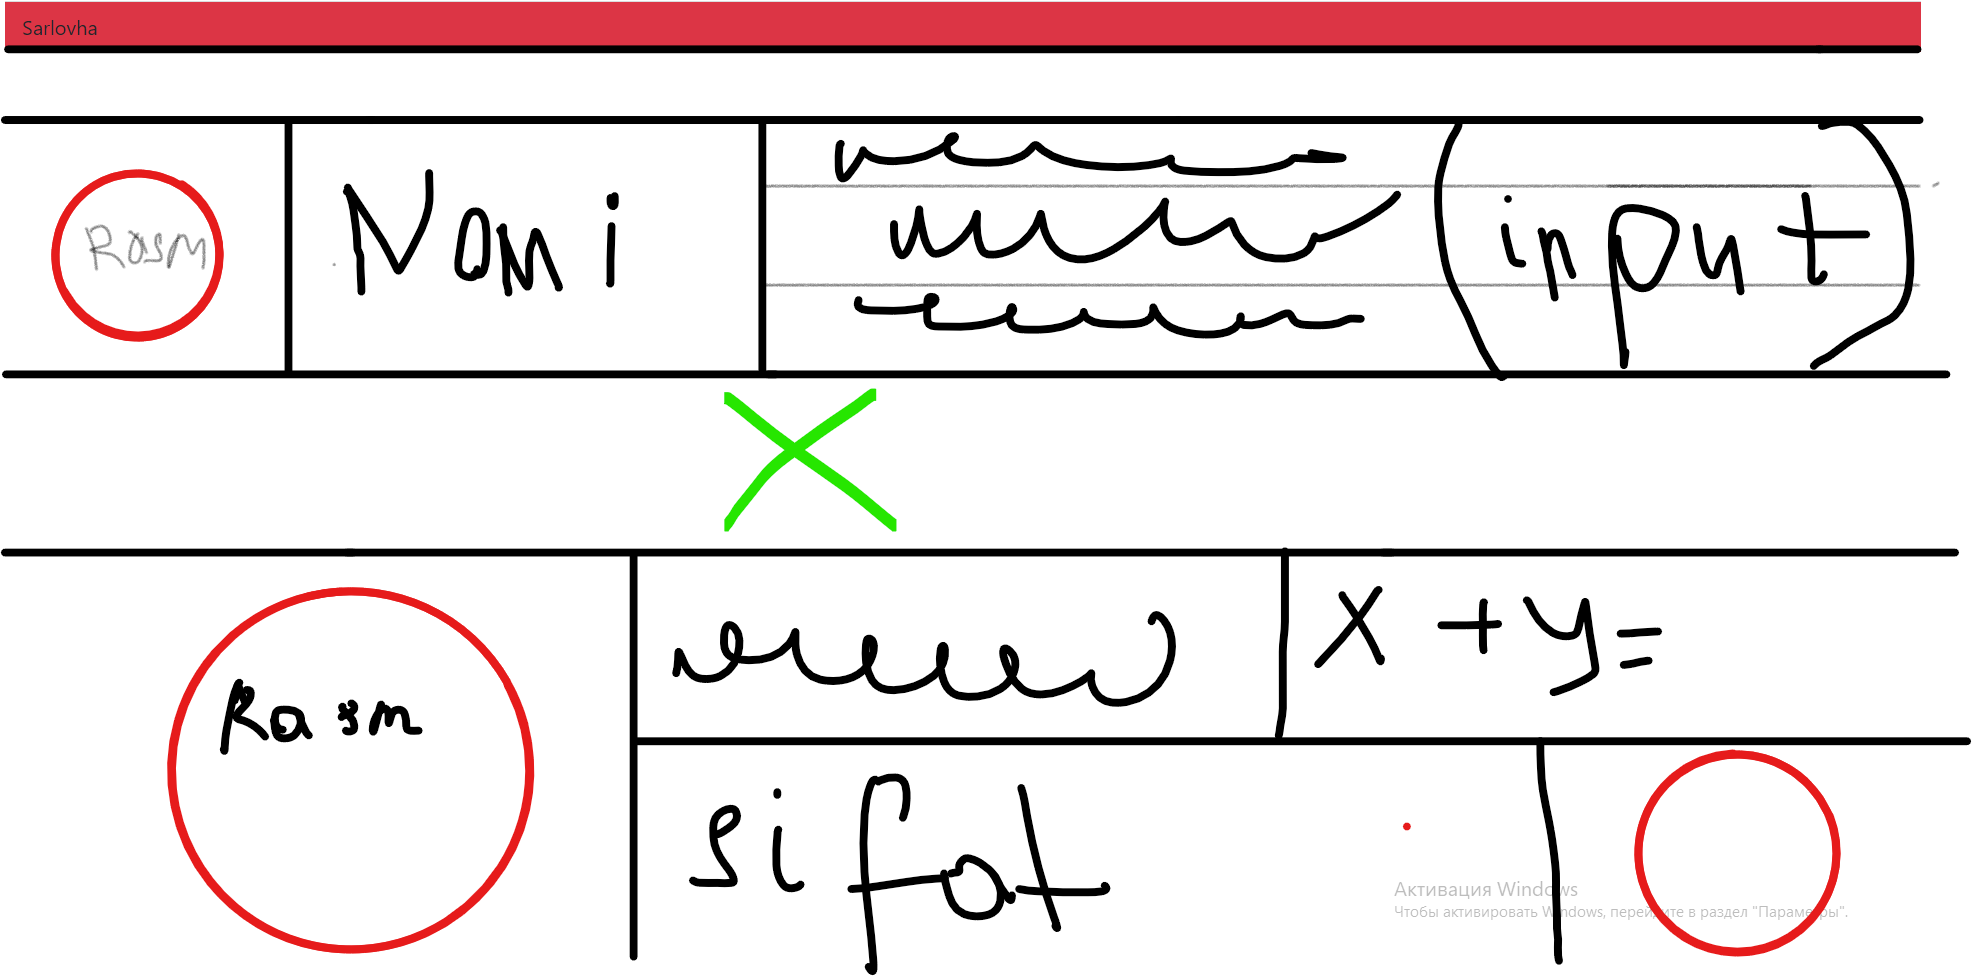 Sarlovha
Rasm
Nomi
input
Rasm
x + y =
Sifat
Активация Windows
Чтобы активировать Windows, перейдите в раздел "Параметры".